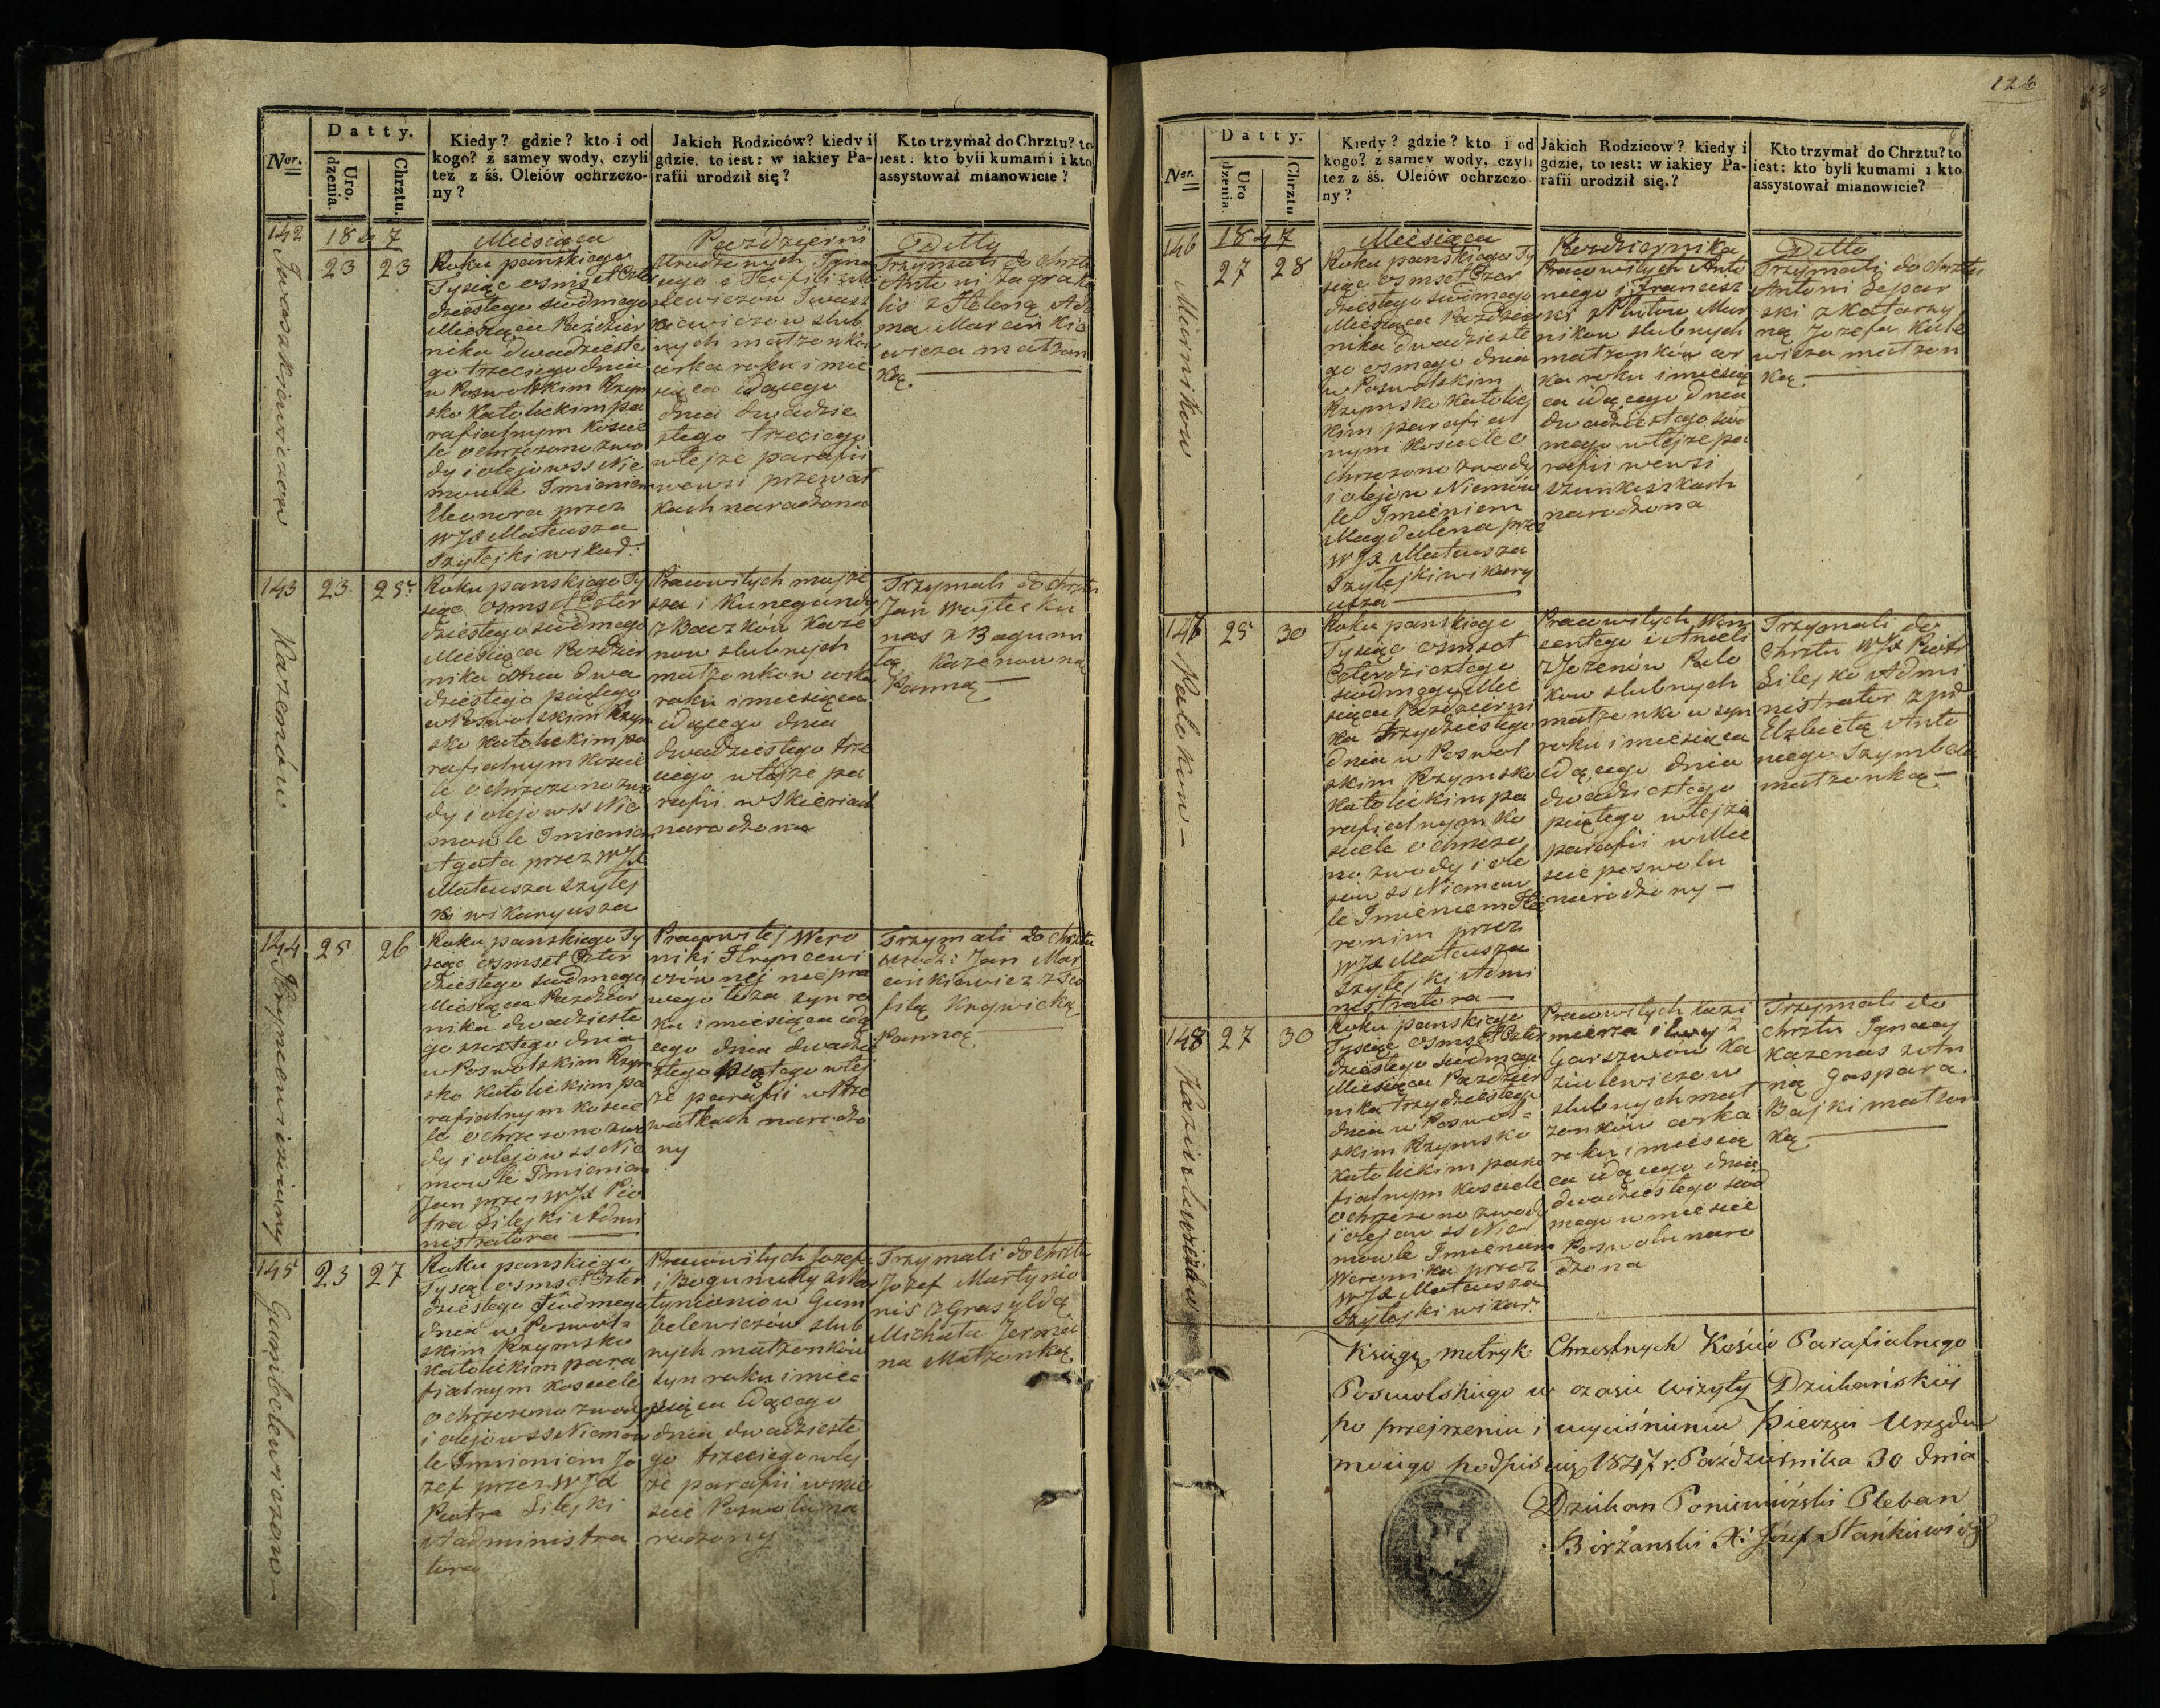 Datty.
Ner.
Uro.
dzenia.
Chrztu.
Kiedy? gdzie? kto i od
kogo? z samey wody, czyli
tez z śś. Oleiów ochrzczo-
ny?
Jakich Rodziców? kiedy i
gdzie, to iest: w iakiey Pa-
rafii urodził się?
Kto trzymał do Chrztu? to
iest: kto byli kumami i kto
assystował mianowicie?
142
1847
23 23
Iwaszkiewiczow
Miesiąca
Roku panskiego
Tysiąc osmset Czter
dziestego siodmego
Miesiąca Paździer
nika dwadzieste
go trzeciego dnia
w Poswolskim Rzym
sko Katolickim pa
rafialnym Kosciе
le ochrzczono zwo
dy i olejow ss Nie
mowle Imieniem
Eleonora przez
WJX Mateusza
Szylejki wikad:
Pazdzierni
Urodzonych Igna
cego i Teofili z
Iwasz
kiewiczow slub
nych matzonkow
corka roku i mie
siąca idącego
dnia dwadzie
stego trzeciego
wtejze parafii
wewsi przewał
kach narodzona
Ditto
Trzymali do chrztu
Antoni
z Heleną Ada
ma Marcinkie
wicza matzon
ką
143 23 25
Kazenów
Roku panskiego Ty
siąc osmset Czter
dziestego siodmego
Miesiąca Pazdzier
nika dnia dwa
dziestego piątego
w Poswolskim Rzym
sko Katolickim pa
rafialnym Koscie
le ochrzczono zwo
dy i olejow ss Nie
mowle Imieniem
Agata przez WJX
Mateusza Szylej
ki wikaryusza
Pracowitych mojże
sza i Kunegundy
z Baczkow Kaze
now slubnych
matzonkow corka
roku i miesiąca
idącego dnia
dwadziestego trze
ciego wtejze pa
rafii w Skieriach
narodzona
Trzymali do chrztu
Jan Wojtecku
nas z Bogumi
lą Kazenowną
Panną
144 25 26
Hryncewiczowny
Roku panskiego Ty
siąc osmset Czter
dziestego siodmego
Miesiąca Pazdzier
nika dwadzieste
go szostego dnia
w Poswolskim Rzym
sko Katolickim pa
rafialnym Koscie
le ochrzczono zwo
dy i olejow ss Nie
mowle Imieniem
Jan przez WJX Pio
tra Lilejki Admi
nistratora
Pracowitej Wero
niki Hryncewi
czównej niepra
wego loza syn ro
ku i miesiąca idą
cego dnia dwadzie
stego piątego wtej
ze parafii w Prze
watkach narodzo
ny
Trzymali do chrztu
urodz: Jan Mar
cinkiewicz z Teo
filą Krywicką
Panną
145 23 27
Gumbelewiczow
Roku panskiego
Tysiąc osmset Czter
dziestego siodmego
dnia w Poswol
skim Rzymsko
Katolickim para
fialnym Kosciele
ochrzczono zwody
i olejow ss Niemow
le Imieniem Jo
zef przez WJX
Piotra Lilejki
Administra
tora
Pracowitych Jozefa
i Bogumily z Mar
tynioniow Gum
belewiczow slub
nych matzonków
syn roku i mie
siąca idącego
dnia dwadzieste
go trzeciego wtej
ze parafii w mie
scie Poswolu na
rodzony
Trzymali do chrztu
Jozef Martynio
nis z Grasyldą
Michała
na Matzonką
126
Datty.
Ner.
Uro
dzenia.
Chrztu
Kiedy? gdzie? kto i od
kogo? z samey wody, czyli
tez z śś. Oleiów ochrzczo
ny?
Jakich Rodziców? kiedy i
gdzie, to iest: w iakiey Pa-
rafii urodził się.?
Kto trzymał do Chrztu? to
iest: kto byli kumami i kto
assystował mianowicie?
146
1847
27 28
Miernikow
Miesiąca
Roku panskiego Ty
siąc osmset Czter
dziestego siodmego
Miesiąca Pazdzier
nika dwadzieste
go osmego dnia
w Poswolskim
Rzymsko Katolic
kim parafial
nym Kosciele o
chrzczono zwody
i olejow Niemów
le Imieniem
Magdalena przez
WJX Mateusza
Szylejki wikary
usza
Pazdziernika
Pracowitych Anto
niego i Francisz
ki
nikow slubnych
matzonków cor
ka roku i miesią
ca idącego dnia
dwadziestego siod
mego wtejze pa
rafii wewsi
szunkiszkach
narodzona
Ditto
Trzymali do chrztu
Antoni Depar
ski z Katarzy
ną Jozefa Kule
wicza matzon
ką
147 25 30
Palokow
Roku panskiego
Tysiąc osmset
Czterdziestego
siodmego Mie
siąca Pazdzierni
ka trzydziestego
dnia w Poswol
skim Rzymsko
Katolickim pa
rafialnym Ko
sciele ochrzczo
no zwody i ole
jow ss Niemow
le Imieniem Hie
ronim przez
WJX Mateusza
Szylejki Admi
nistratora
Pracowitych Win
centego i Anieli
z Jozenów Palo
kow slubnych
matzonkow syn
roku i miesiąca
idącego dnia
dwadziestego
piątego wtejze
parafii w Mie
scie poswolu
narodzony
Trzymali do
Chrztu WJX Piotr
Lilejko Admi
nistrator z pd
Elzbietą Anto
niego Szymbela
matzonką
148 27 30
Kaziulewiczow
Roku panskiego
Tysiąc osmset Czter
dziestego siodmego
Miesiąca Pazdzier
nika trzydziestego
dnia w Poswol
skim Rzymsko
Katolickim para
fialnym Kosciele
ochrzczono zwody
i olejow ss Nie
mowle Imieniem
Weronika przez
WJX Mateusza
Szylejki wikar:
Pracowitych Kazi
mierza i Ewy z
Garszwow Ka
ziulewiczow
slubnych mat
zonków corka
roku i miesią
ca idącego dnia
dwadziestego siod
mego w miescie
Poswolu naro
dzona
Trzymali do
chrztu Ignacy
Kazenas z An
ną Gaspara
Bajki matzon
ką
Księgę metryk Chrzestnych Kościo Parafialnego
Poswolskiego w czasie wizyty Dziekańskiej
po przejrzeniu i wyciśnieniu pieczęci Urzędu
mojego podpisuię 1847 r. Października 30 dnia
Dziekan Poniewiezski Pleban
Birżanski X: Jozef Stańkiewicz